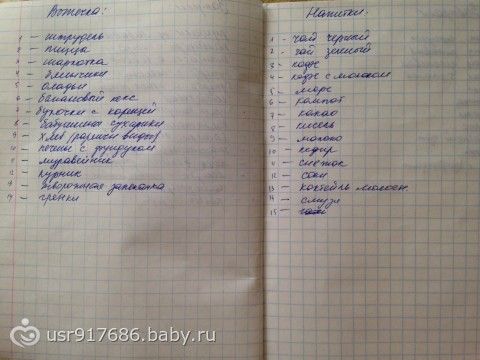 Выпечка:
1 - штрудель
2 - пицца
3 - шарлотка
4 - блинчики
5 - оладьи
6 - банановый кекс
7 - булочки с корицей
8 - бабушкины сухарики
9 - хлеб (разных видов)
10 - печенье с фундуком
11 - муравейник
12 - курник
13 - творожная запеканка
14 - гренки
Напитки:
1 - чай черный
2 - чай зеленый
3 - кофе
4 - кофе с молоком
5 - морс
6 - компот
7 - какао
8 - кисель
9 - молоко
10 - кефир
11 - снежок
12 - соки
13 - коктейль молочн.
14 - смузи
15 -
usr917686.baby.ru